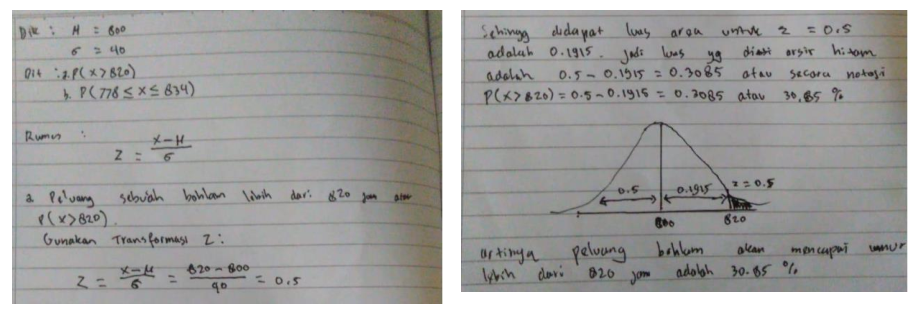 Dik : μ = 800
σ = 40
Dit : a. P(x>820)
b. P(778 ≤ x ≤ 834)
Rumus :
Z = x-μ / σ
a. Peluang sebuah bohlam lebih dari 820 jam atau
P(x>820).
Gunakan Transformasi Z :
Z = x-μ / σ = 820-800 / 40 = 0.5
Sehingga didapat luas area untuk z = 0.5
adalah 0.1915. Jadi luas yg diarsir hitam
adalah 0.5-0.1915 = 0.3085 atau secara notasi
P(x>820) = 0.5-0.1915 = 0.3085 atau 30.85 %
0.5 0.1915 z = 0.5
800 820
artinya peluang bohlam akan mencapai umur
lebih dari 820 jam adalah 30.85 %